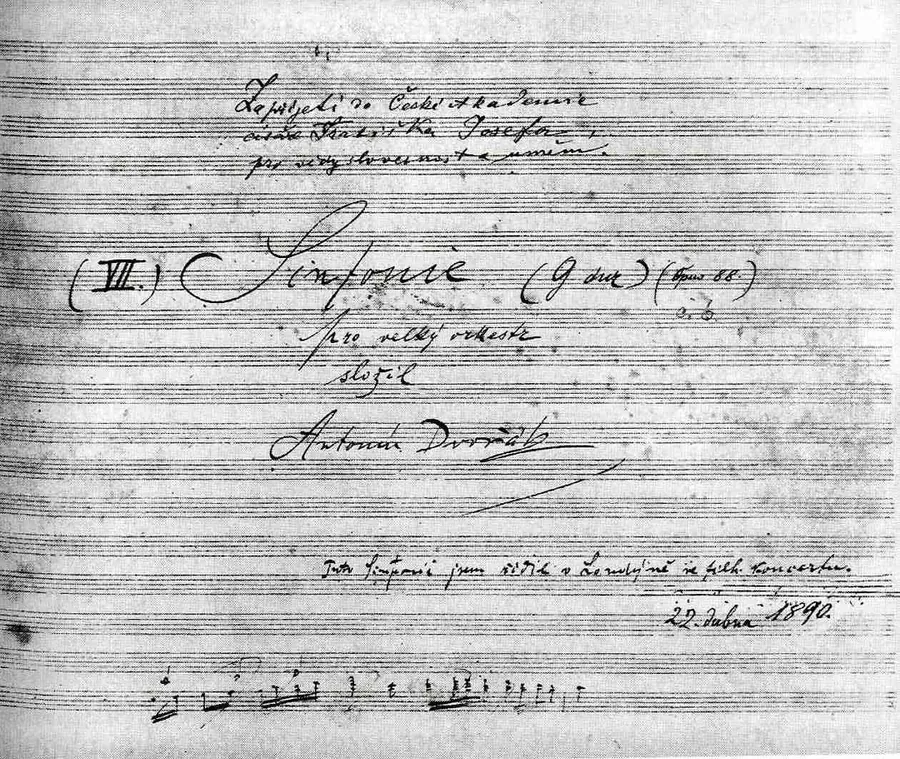 Za přijetí do České Akademie
císaře Františka Josefa,
pro vědy slovesnost a umění.
(VII.) Sinfonie (G dur) (Opus 88.)
pro velký orkestr
složil
Antonín Dvořák
Tuto Sinfonii jsem řídil v Londýně ve filh. koncertu.
22. dubna 1890.